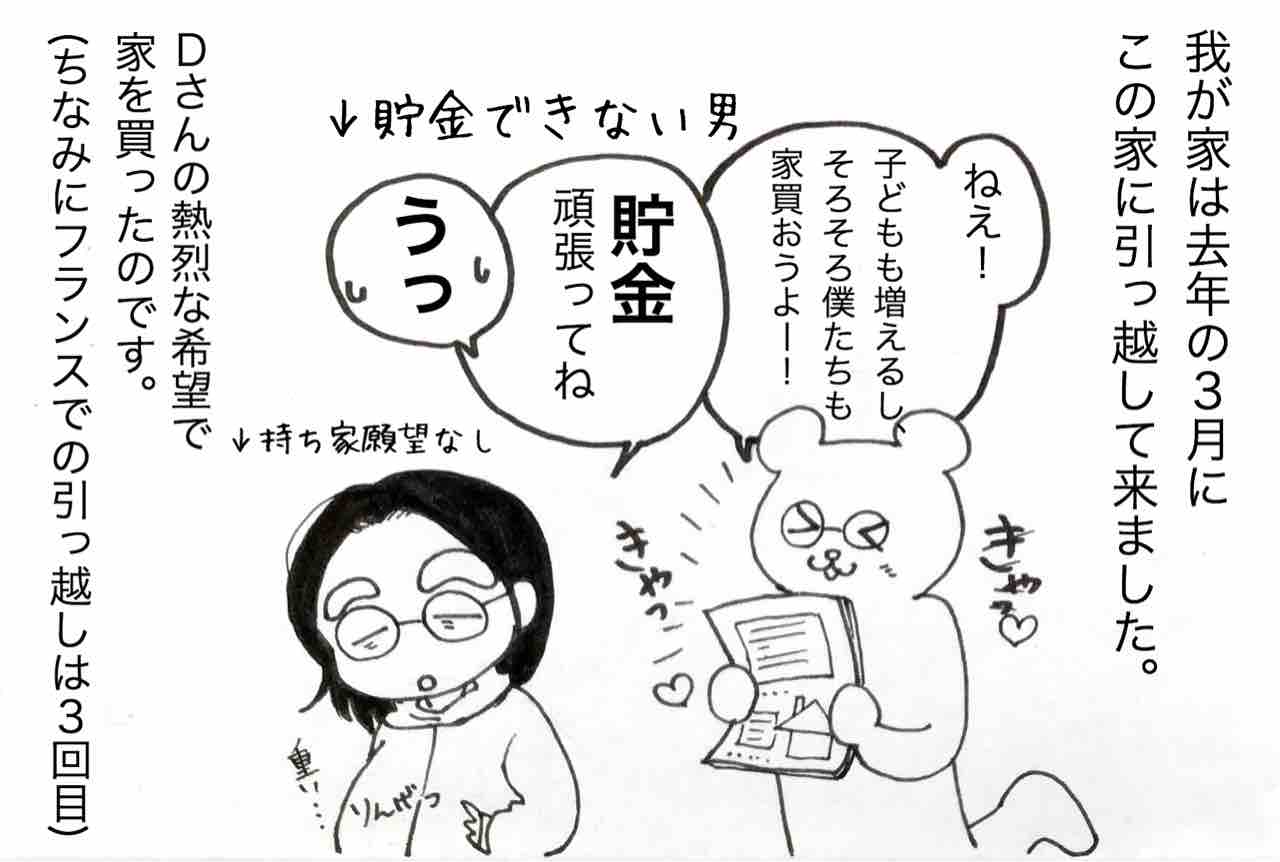 我が家は去年の3月に
この家に引っ越して来ました。
ねえ!
子どもも増えるし、
そろそろ僕たちも
家買おうよー!
きゃっ
きゃっ
貯金
頑張ってね
↓貯金できない男
うっ
↓持ち家願望なし
重い…
りんげっ
Dさんの熱烈な希望で
家を買ったのです。
(ちなみにフランスでの引っ越しは3回目)